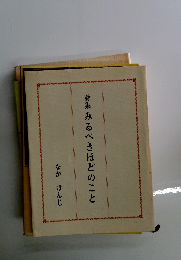 詩集 みるべきほどのこと
なか けんじ